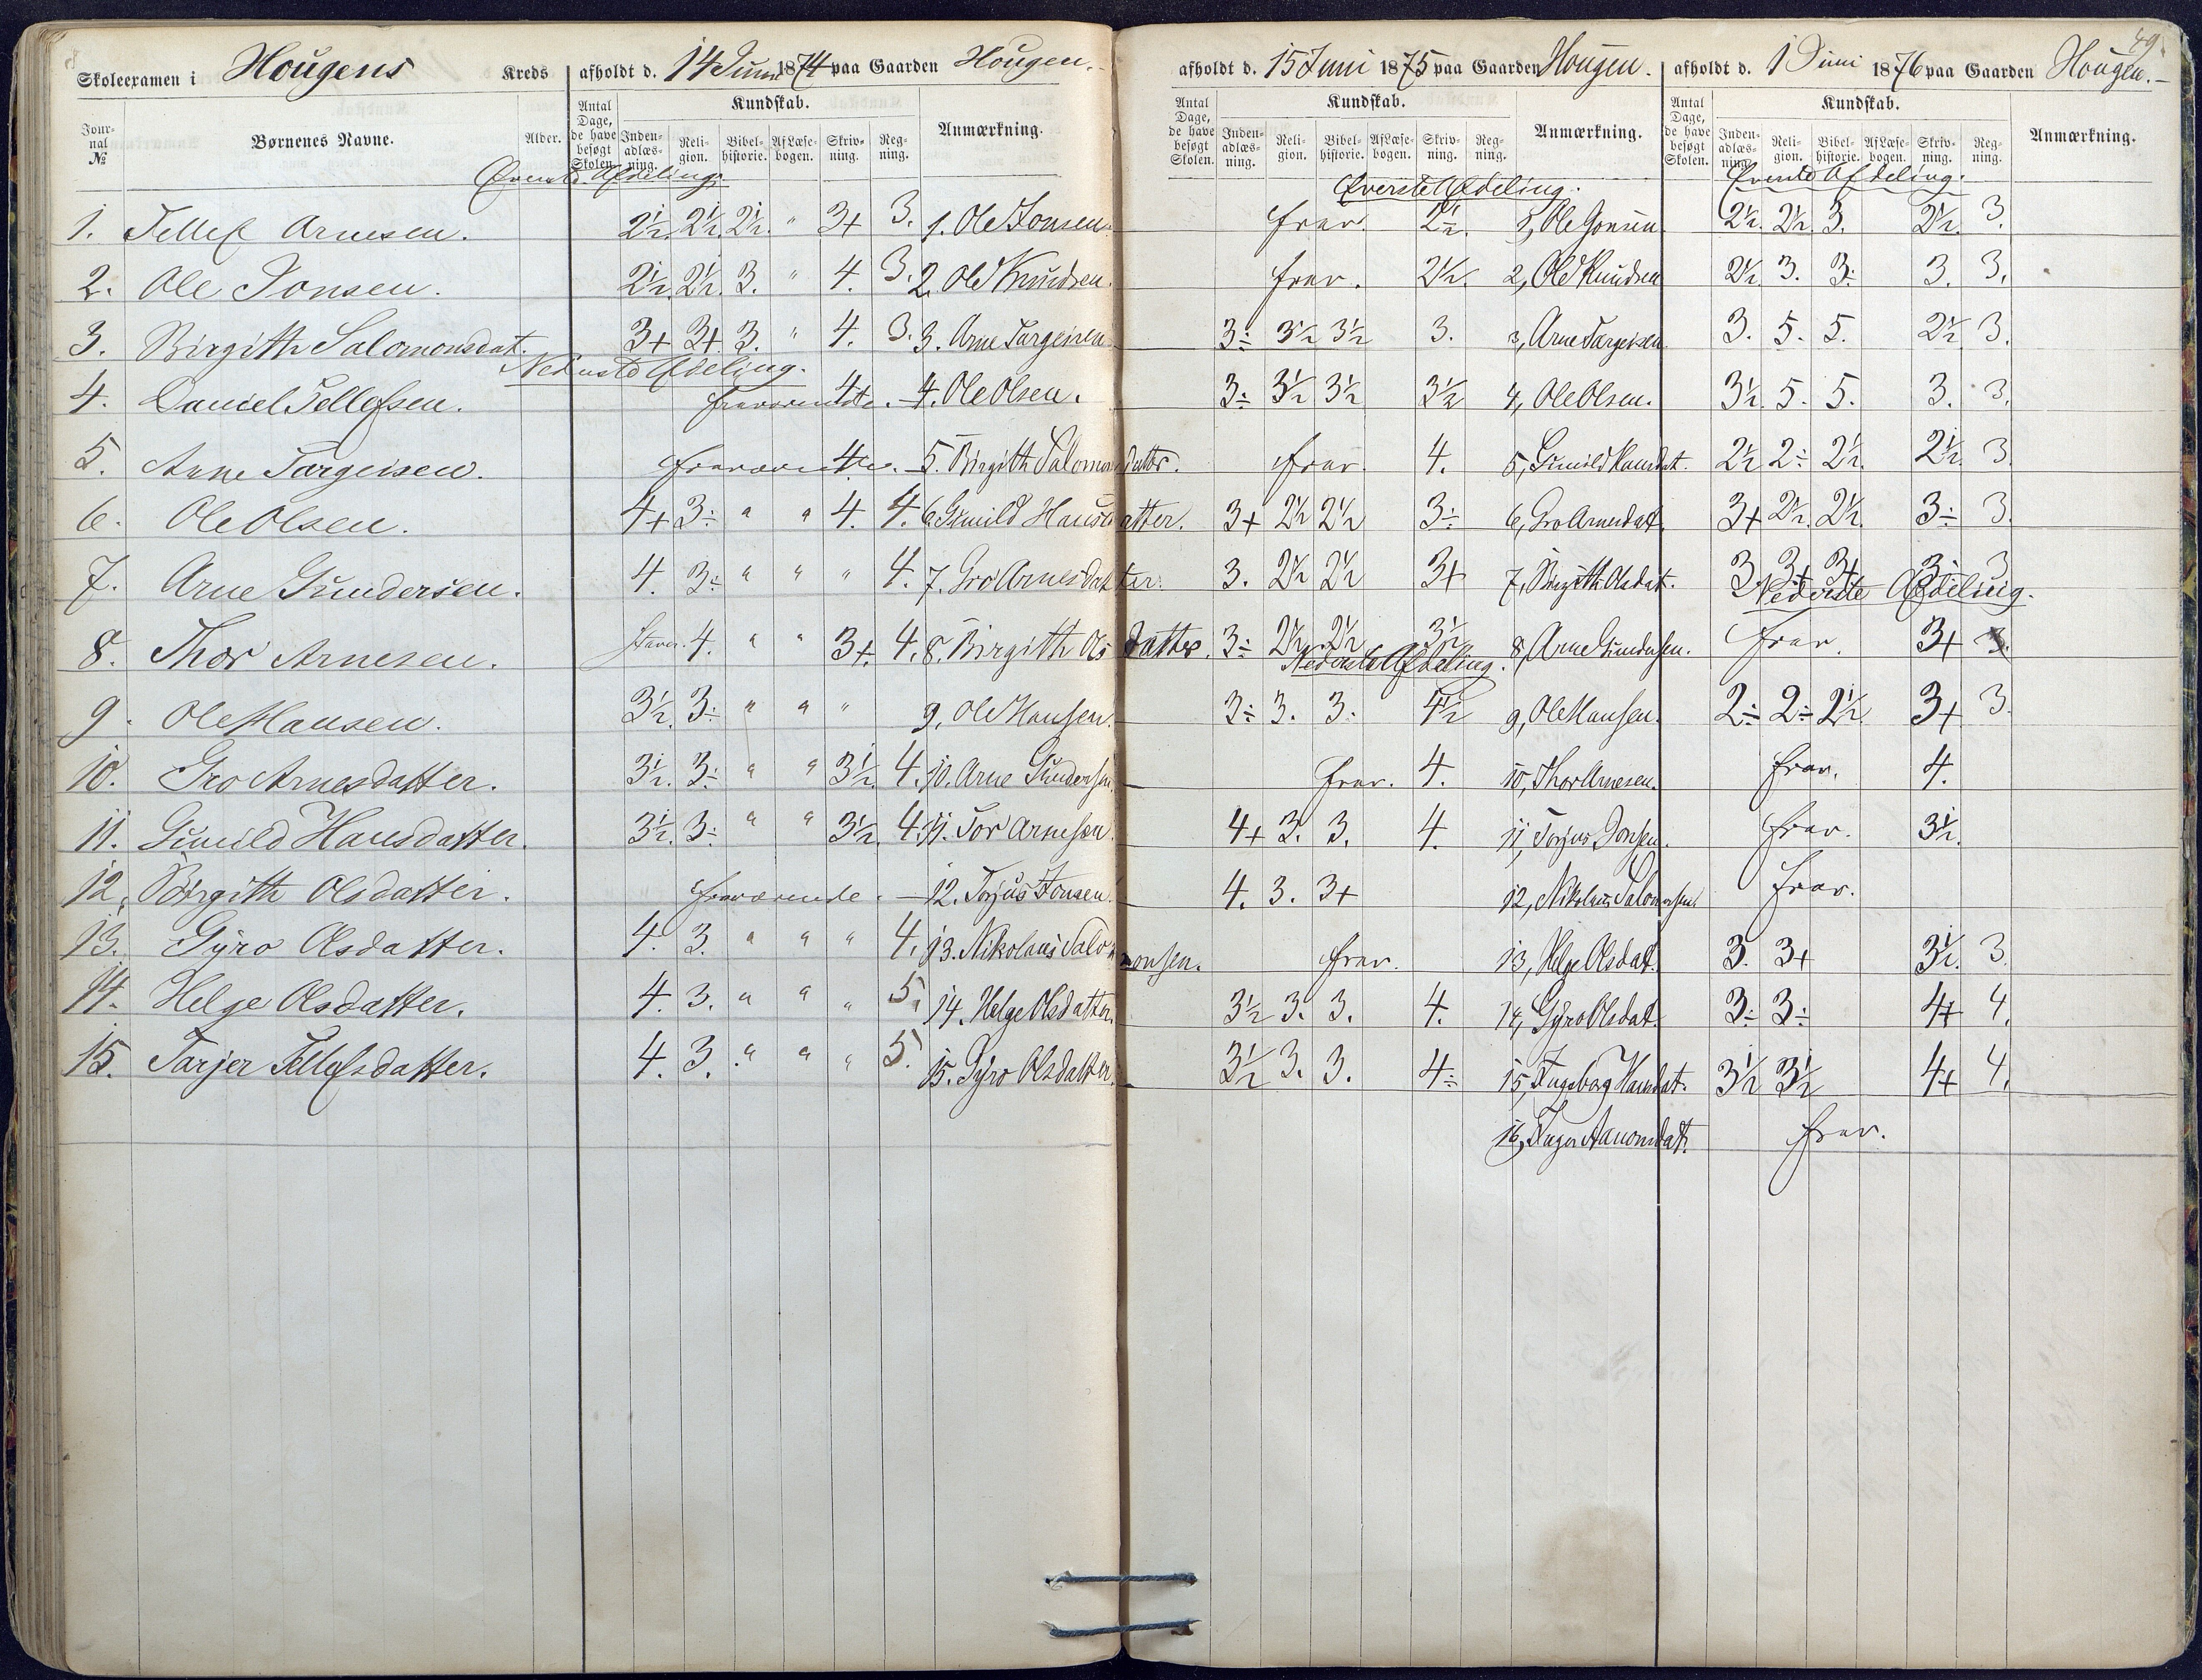 Skoleexamen i Hougens Kreds afholdt d. 14 Juni 1874 paa Gaarden Hougen.
Journal No Børnenes Navne. Alder. Antal Dage, de have besøgt Skolen. Kundskab. Indenadlæsning. Religion. Bibelhistorie. Af Læsebogen. Skrivning. Regning. Anmærkning.
Øverste Afdeling.
1. Tellef Arnesen. 2½. 2½. 2½. " 3+ 3. 1. Ole Jonsen.
2. Ole Jonsen. 2½. 2½. 3. " 4. 3. 2. Ole Knudsen.
3. Birgith Salomonsdat. 3+ 3+ 3. " 4. 3. 3. Arne Targeisen
Nederste Afdeling.
4. Daniel Tellefsen. fraværende. 4+ 4. Ole Olsen.
5. Arne Targeisen. fraværende. 4. 5. Birgith Salomonsdatter.
6. Ole Olsen. 4+ 3÷ " " 4. 4. 6. Gunild Hansdatter.
7. Arne Gundersen. 4. 3÷ " " " 4. 7. Gro Arnesdatter.
8. Thor Arnesen. 4. " " 3+. 4. 8. Birgith Olsdatter.
9. Ole Hansen. 3½. 3÷ " " " 9, Ole Hansen.
10. Gro Arnesdatter. 3½. 3÷ " " 3½. 4. 10. Arne Gundersen
11. Gunild Hansdatter. 3½. 3÷ " " 3½. 4. 11. Tor Arnesen.
12. Birgith Olsdatter. fraværende. 12. Torjus Jonsen.
13. Gyro Olsdatter. 4. 3. " " " 4. 13. Nikolais Salomonsen.
14. Helge Olsdatter. 4. 3. " " " 5. 14. Helge Olsdatter.
15. Tarjer Tellefsdatter. 4. 3. " " " 5. 15. Gyro Olsdatter.
49.
afholdt d. 15 Juni 1875 paa Gaarden Hougen. afholdt d. 1 Juni 1876 paa Gaarden Hougen.
Antal Dage, de have besøgt Skolen. Kundskab. Indenadlæsning. Religion. Bibelhistorie. Af Læsebogen. Skrivning. Regning. Anmærkning. Antal Dage, de have besøgt Skolen. Kundskab. Indenadlæsning. Religion. Bibelhistorie. Af Læsebogen. Skrivning. Regning. Anmærkning.
Øverste Afdeling. Øverste Afdeling.
frav. 2½. 1, Ole Jonsen. 2½. 2½. 3. 2½. 3.
frav. 2½. 2, Ole Knudsen 2½. 3. 3÷ 3. 3.
3÷ 3½ 3½ 3. 3, Arne Targeisen. 3. 5. 5. 2½ 3.
3÷ 3½ 3½ 3½ 4, Ole Olsen. 3½. 5. 5. 3. 3.
frav. 4. 5, Gunild Hansdat. 2½ 2÷ 2½. 2½. 3
3+ 2½ 2½ 3÷ 6, Gro Arnesdat. 3+ 2½. 2½. 3÷ 3.
3. 2½ 2½ 3+ 7, Birgith Olsdat. 3. 3+ 3+ 3÷ 3
Nederste Afdeling.
3÷ 2½. 2½ 3½ 8, Arne Gundersen. frav. 3+ 3.
Nederste Afdeling.
3÷ 3. 3. 4½ 9, Ole Hansen. 2÷ 2÷ 2½. 3+ 3.
frav. 4. 10, Thor Arnesen. frav. 4.
4+ 3. 3. 4. 11, Torjus Jonsen. frav. 3½.
4. 3. 3+ 12, Nikolais Salomonsen. frav.
frav. 13, Helge Olsdat. 3. 3+ 3½. 3.
3½ 3. 3. 4. 14, Gyro Olsdat. 3÷ 3÷ 4+ 4.
3½ 3. 3. 4÷ 15, Ingeborg Hansdat. 3½ 3½ 4+ 4.
16, Inger Aanonsdat. frav.